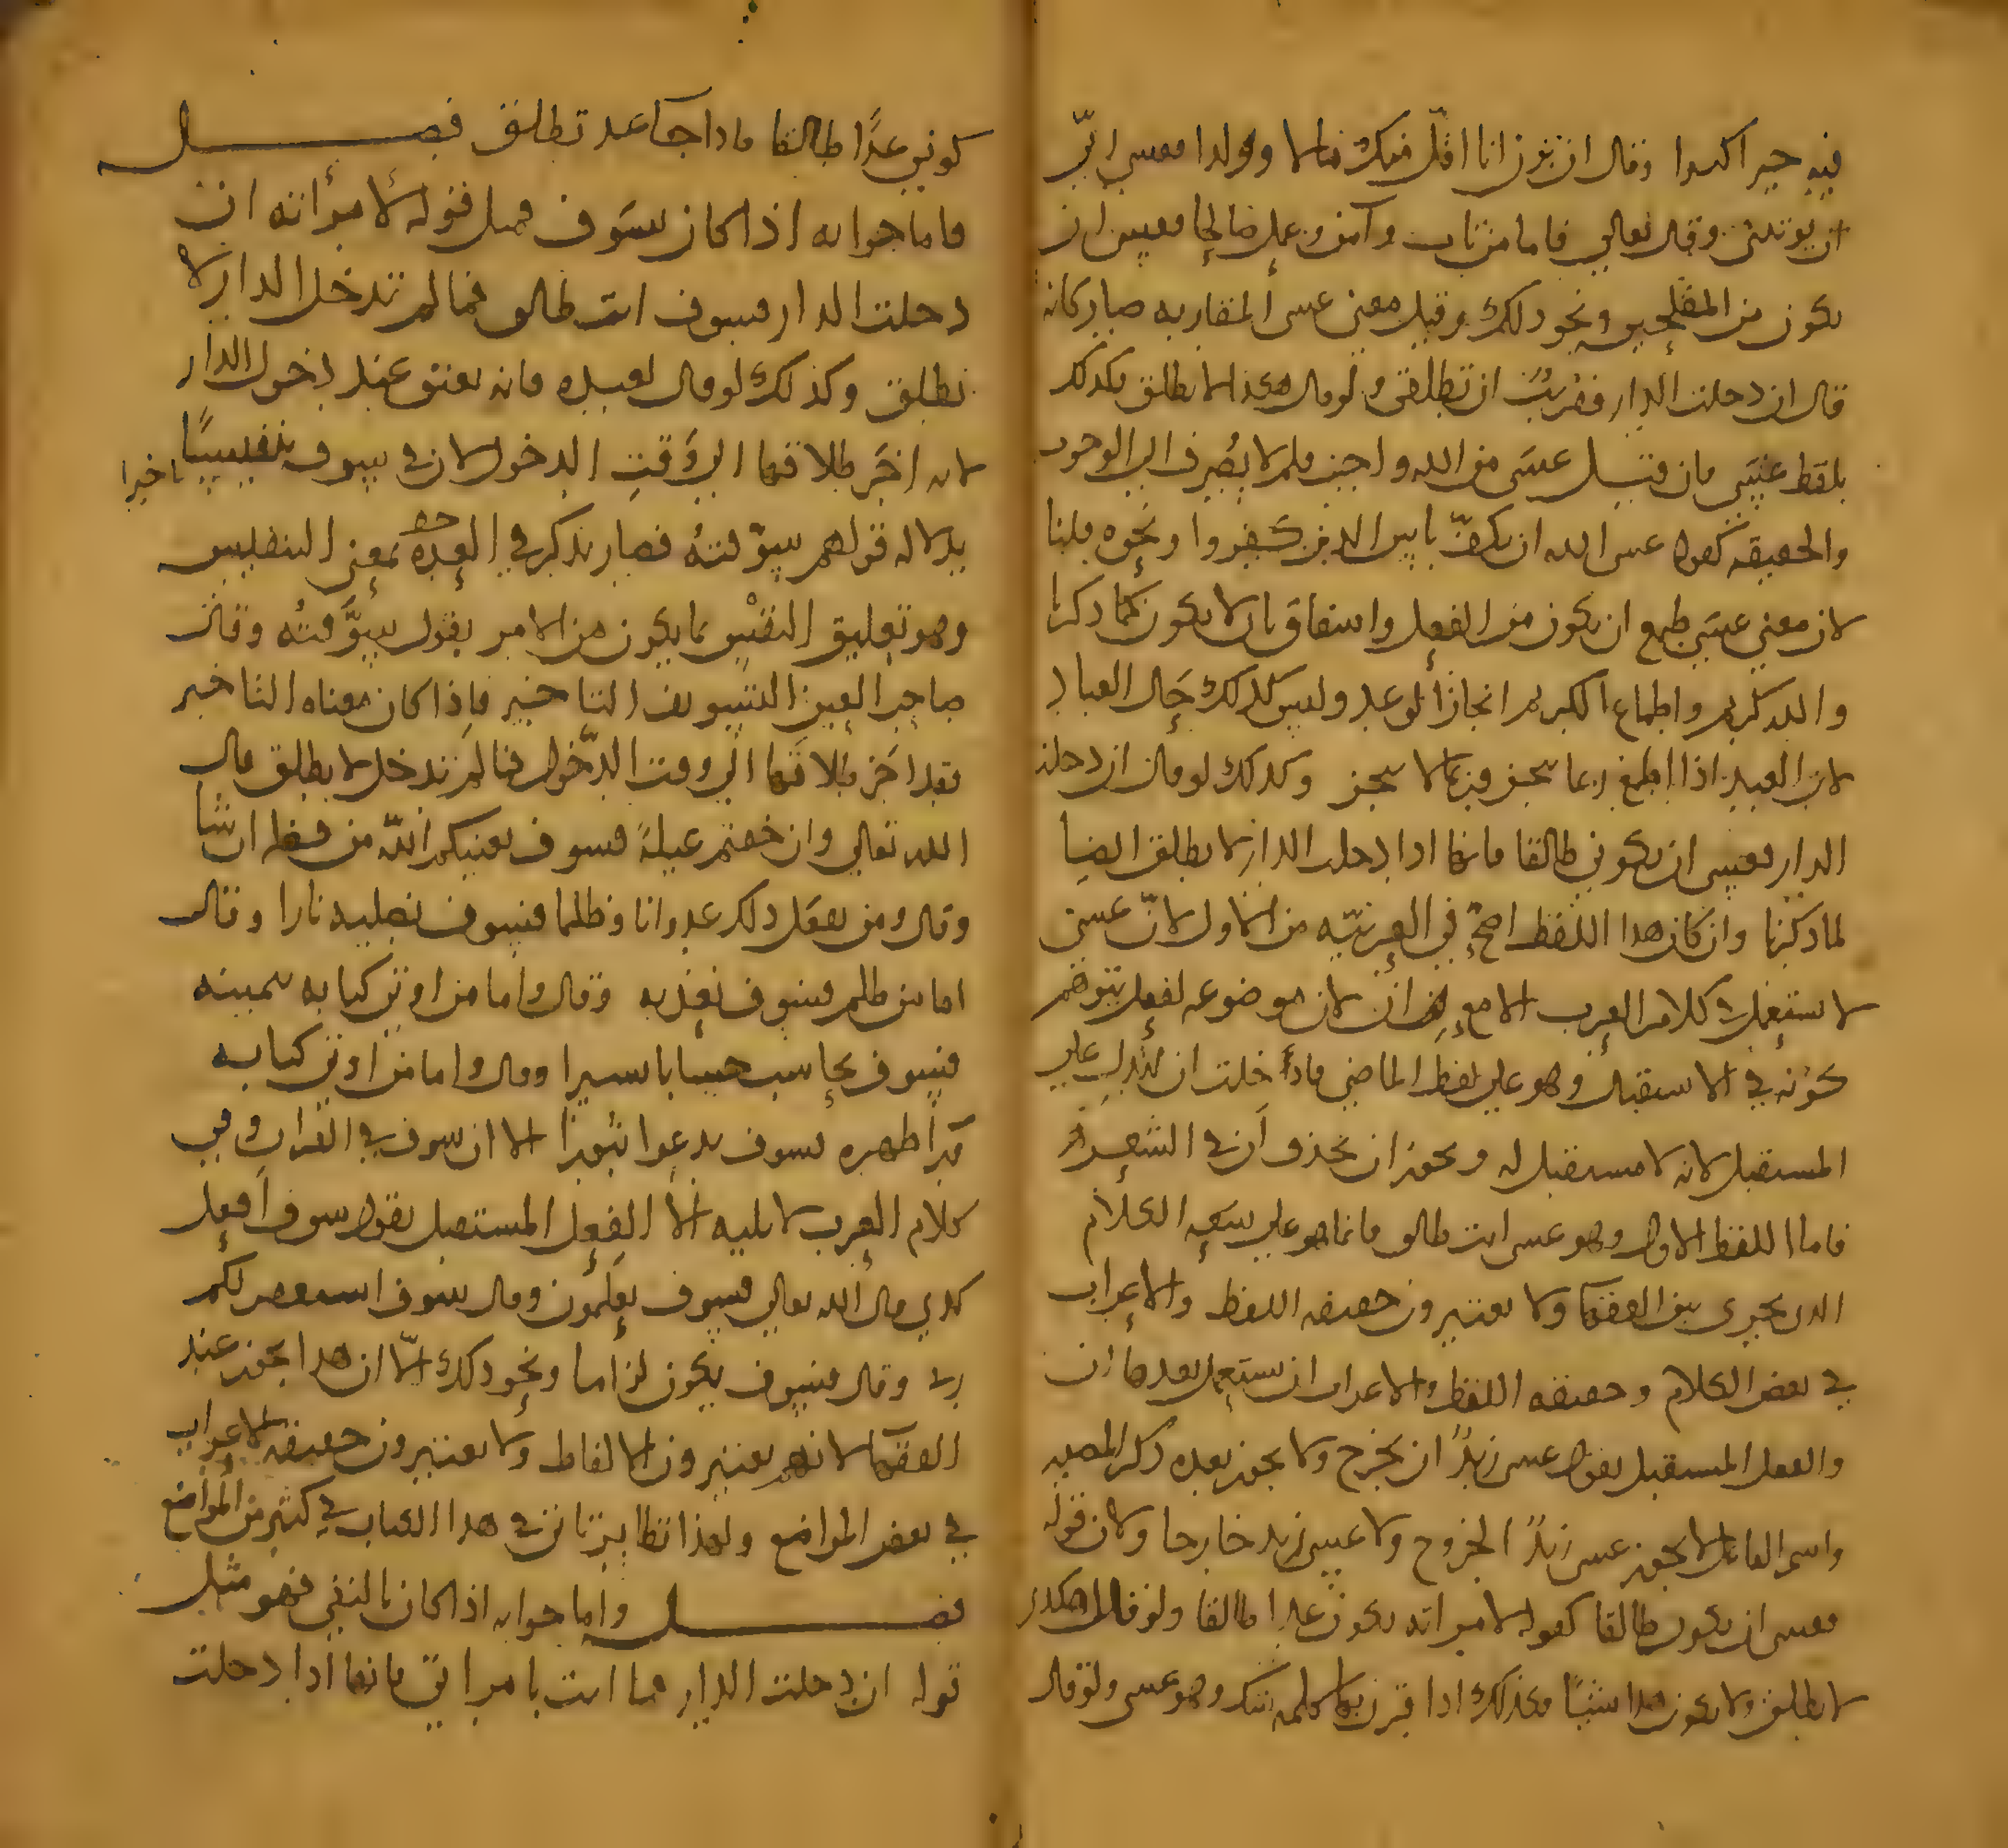 فيه خيرا كثيرا وقال ان ترن انا اقل منك مالا وولدا فعسى ربي
ان يؤتين وقال تعالى فاما من تاب وآمن وعمل صالحا فعسى ان
يكون من المفلحين ونحو ذلك وقيل معنى عسى المقاربه صار كانه
قال ان دخلت الدار فقربت ان تطلقي ولو قال هكذا لا تطلق فكذلك
بلفظ عسى فان قيل عسى من الله واجب فلم لا يصرف الى الوجوب
والحقيقه كقوله عسى الله ان يكف باس الذين كفروا ونحوه قلنا
لان معنى عسى طمع ان يكون من الفعل واشفاق بان لا يكون كما ذكرنا
والله كريم واطماع الكريم انجاز الوعد وليس كذلك حال العباد
لان العبد اذا اطمع ربما ينجز وربما لا ينجز وكذلك لو قال ان دخلت
الدار فعسى ان تكوني طالقا فانها اذا دخلت الدار لا تطلق ايضا
لما ذكرنا وان كان هذا اللفظ اصح في العربيه من الاول لان عسى
لا يستعمل في كلام العرب الا مع ان لان موضوعه لفعل يتوهم
كونه في الاستقبال وهو على لفظ الماضي فادخلت ان لتدل على
المستقبل لانه لا مستقبل له ويجوز ان تحذف ان في الشعر
فاما اللفظ الاول وهو عسى انت طالق فانما هو على سعه الكلام
الذي يجري بين الفقها ولا يعتبرون حقيقه اللفظ والاعراب
في بعض الكلام وحقيقه اللفظ والاعراب ان يستعمل بعدها ان
والفعل المستقبل يقول عسى زيد ان يخرج ولا يجوز بعده ذكر المصدر
واسم الفاعل لا يجوز عسى زيد الخروج ولا عسى زيد خارجا ولان قوله
فعسى ان يكون طالقا كقوله لامراته تكون غدا طالقا ولو قال هكذا
لا تطلق ولا يكون هذا شيا فكذلك اذا قرن بها كلمه شك وهو عسى ولو قال
كوني غدا طالقا فاذا جا غد تطلق فصل
فاما جوابه اذا كان بسوف فمثل قوله لامرأته ان
دخلت الدار فسوف انت طالق فما لم تدخل الدار لا
تطلق وكذلك لو قال لعبده فانه يعتق عند دخول الدار
لانه اخر طلاقها الى وقت الدخول لان في سوف تنفيسا تاخيرا
بدلاله قولهم سوفته فصار يذكر في العده بمعنى التنفيس
وهو تعليق النفس بما يكون من الامر يقول سوفته وقال
صاحب العين التسويف التاخير فاذا كان معناه التاخير
فقد اخر طلاقها الى وقت الدخول فما لم تدخل لا تطلق قال
الله تعالى وان خفتم عيلة فسوف يغنيكم الله من فضله ان شا
وقال ومن يفعل ذلك عدوانا وظلما فسوف نصليه نارا وقال
اما من ظلم فسوف نعذبه وقال واما من اوتي كتابه بيمينه
فسوف يحاسب حسابا يسيرا وقال واما من اوتي كتابه
ورا ظهره فسوف يدعوا ثبورا الا ان سوف في القران وفي
كلام العرب لا يليه الا الفعل المستقبل يقول سوف افعل
كذا قال الله تعالى فسوف يعلمون وقال سوف استغفر لكم
ربي وقال فسوف يكون لزاما ونحو ذلك الا ان هذا يجوز عند
الفقها لانهم يعتبرون الالفاظ ولا يعتبرون حقيقه الاعراب
في بعض المواضع ولهذا نظاير تاتي في هذا الكتاب في كثير من المواضع
فصل واما جوابه اذا كان بالنفي فهو مثل
قوله ان دخلت الدار فما انت بامراتي فانها اذا دخلت